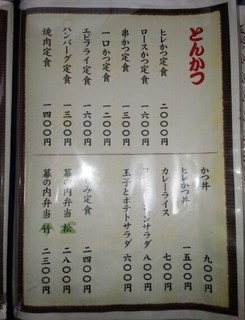 とんかつ
ヒレかつ定食 二〇〇〇円
ロースかつ定食 一六〇〇円
串かつ定食 一三〇〇円
一口かつ定食 一二〇〇円
エビフライ定食 一六〇〇円
ハンバーグ定食 一三〇〇円
焼肉定食 一四〇〇円
かつ丼 九〇〇円
ヒレかつ丼 一五〇〇円
カレーライス 七〇〇円
サラダ 八〇〇円
玉子とポテトサラダ 六〇〇円
定食 二四〇〇円
幕の内弁当 松 二八〇〇円
幕の内弁当 竹 二三〇〇円